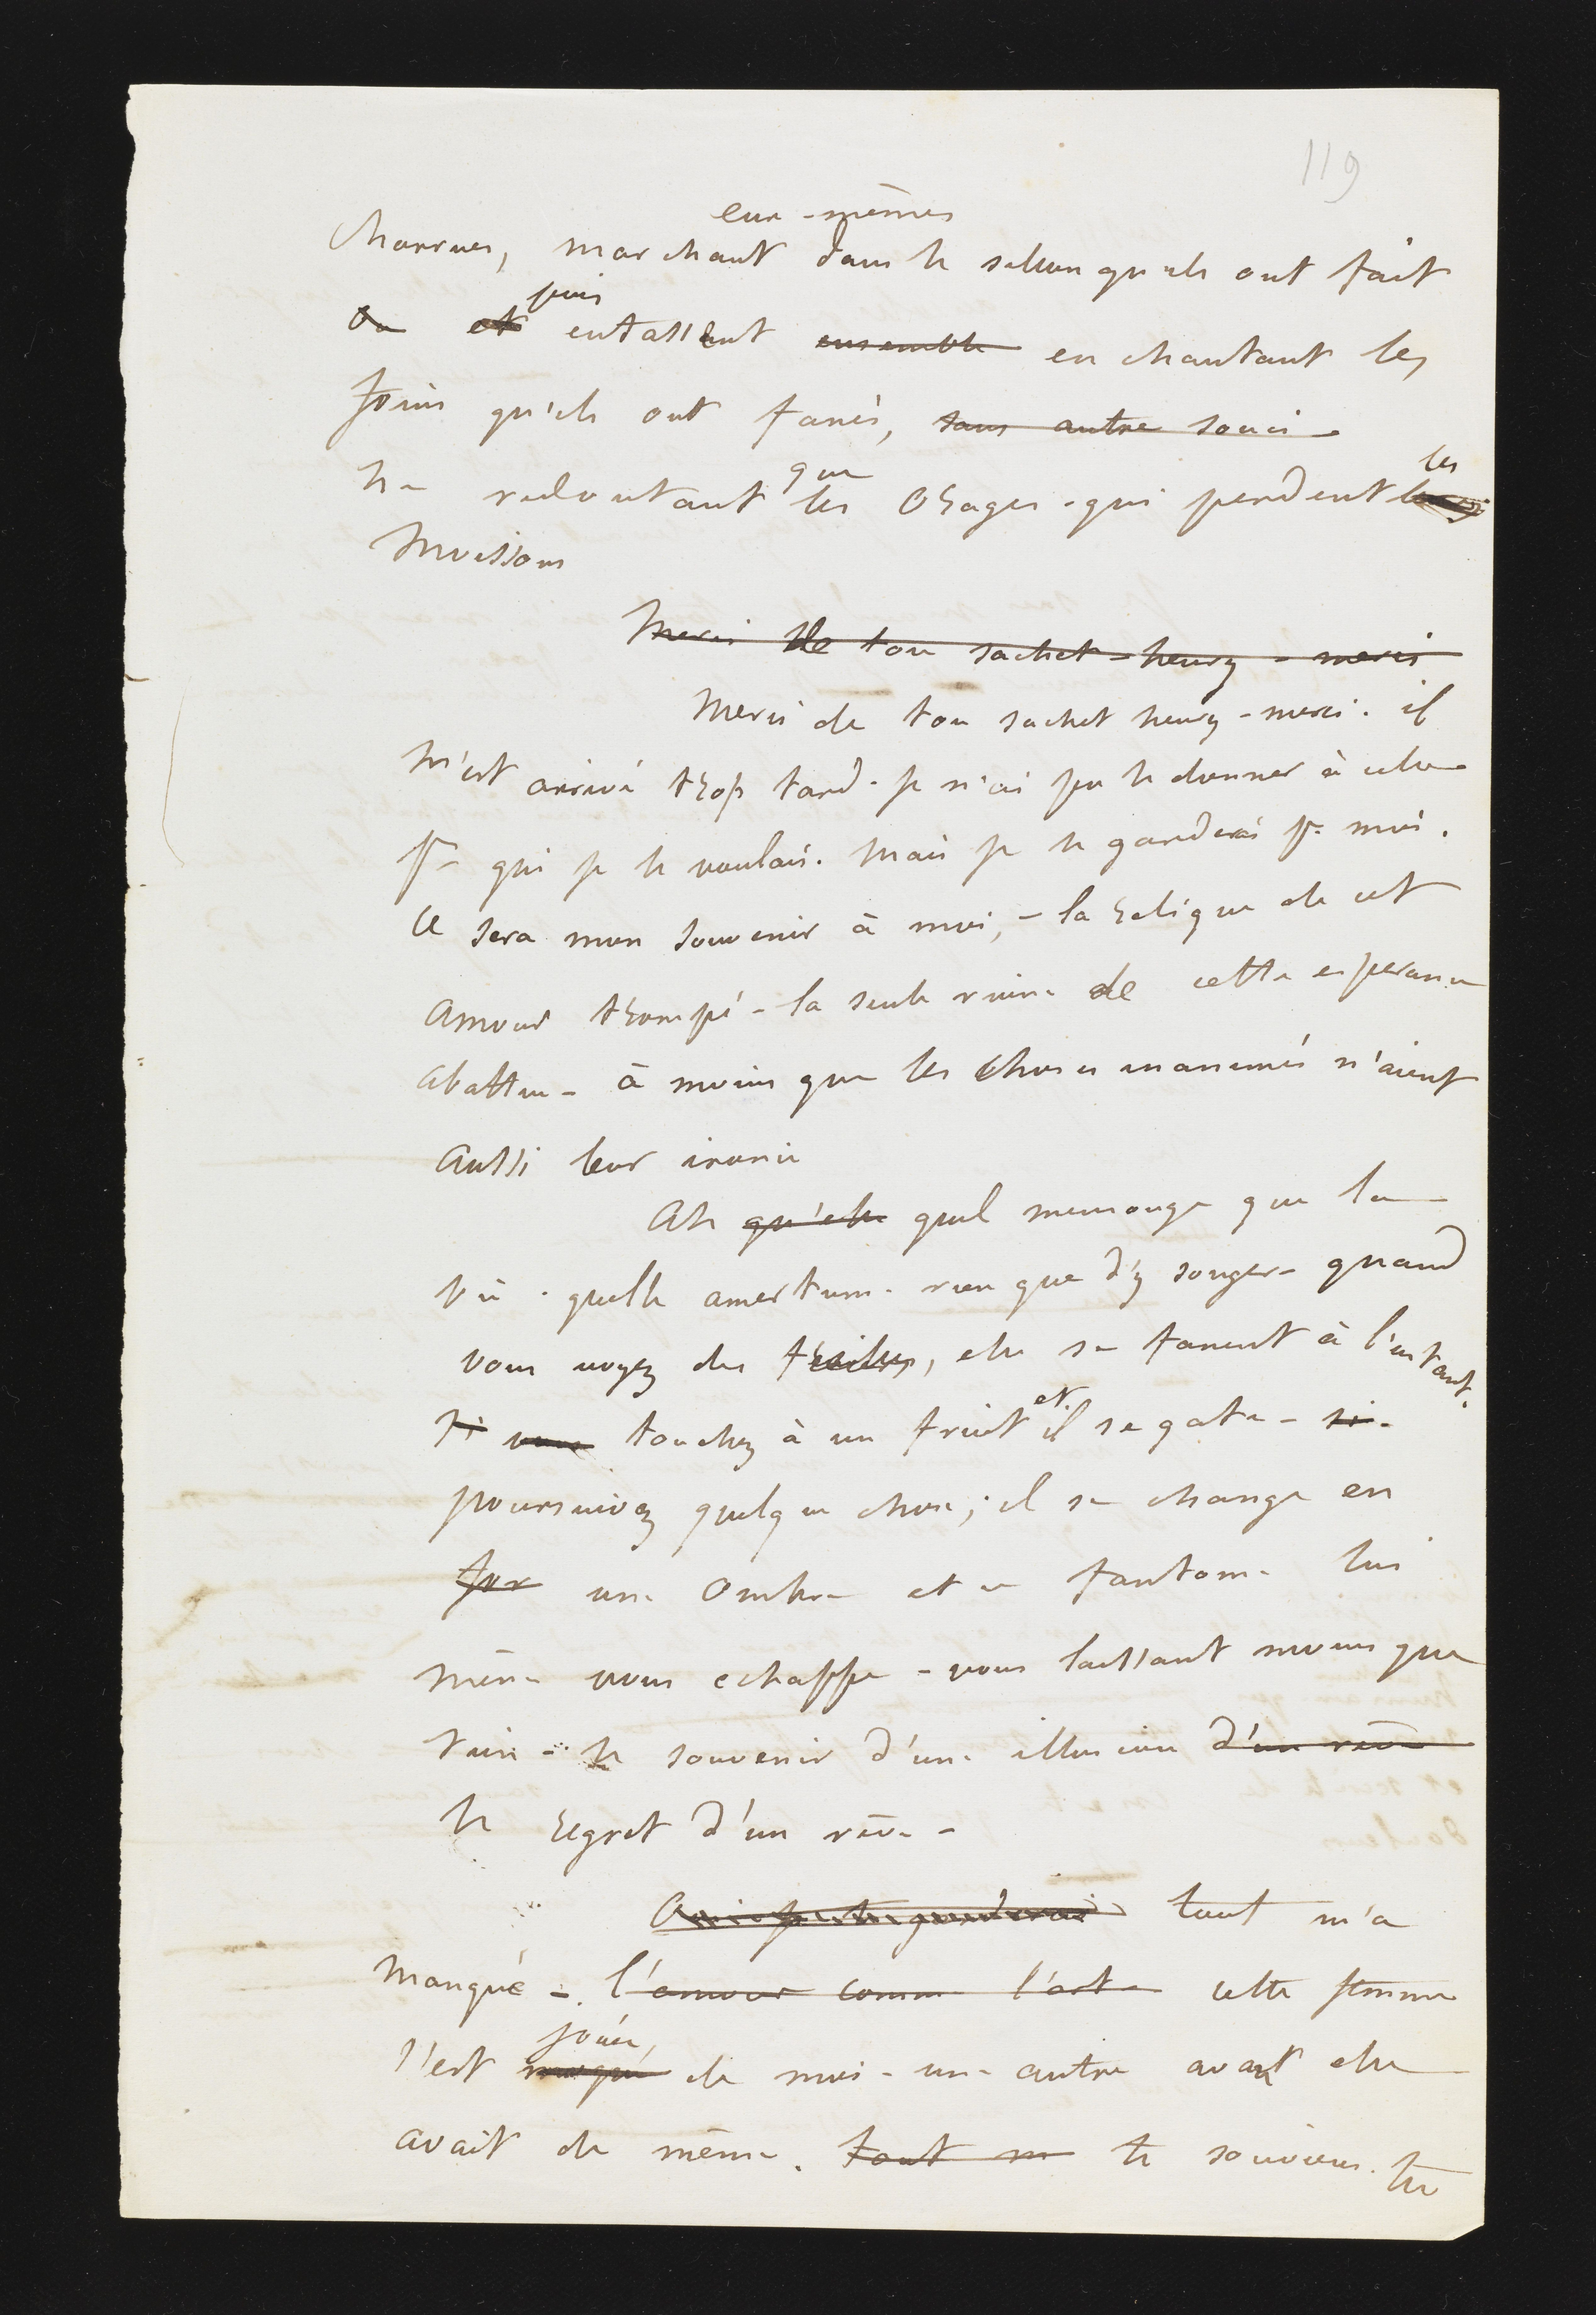 119
eux-mêmes
charrues, marchant dans le sillon qu'ils ont fait
puis
ou et entassent ensemble en chantant les
foins qu'ils ont fanés, sans autre souci -
que
ne redoutant les orages - qui perdent les
moissons
merci de ton sachet - henry - merci
merci de ton sachet henry - merci. il
m'est arrivé trop tard - je n'ai pu le donner à celle
pr qui je le voulais. mais je le garderai pr moi.
ce sera mon souvenir à moi, - la relique de cet
amour trompé - la seule ruine de cette esperance
abattue - à moins que les choses inanimés n'aient
aussi leur ironie
Ah qu'elle quel mensonge que la
vie. quelle amertume rien que d'y songer - quand
vous voyez des feuilles, elle se fanent à l'instant.
et
si vous touchez à un fruit il se gate - si -
poursuivez quelque chose; il se change en
for une ombre et ce fantome lui
même vous echappe - vous laissant moins que
rien - le souvenir d'une illusion d'un rêve
le regret d'un rêve -
tout m'a
manqué - l'amour comme l'art - cette femme
jouée,
s'est moqué de moi - une autre avant elle
avait de même. tout m te souviens tu